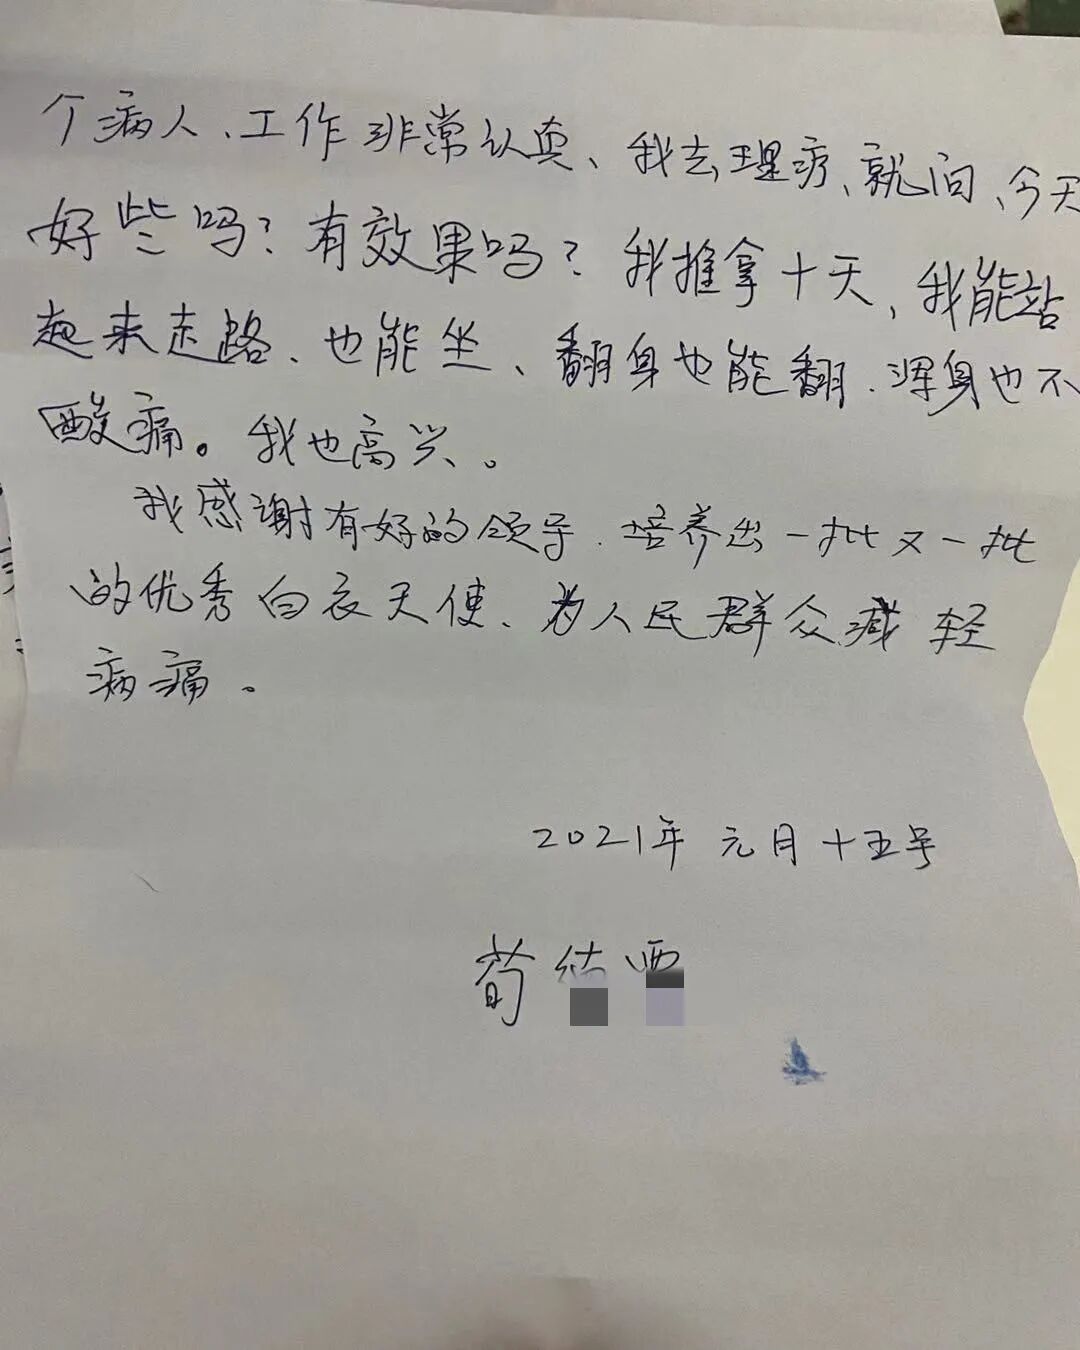 个病人、工作非常认真、我去理疗、就问、今天
好些吗？有效果吗？我推拿十天、我能站
起来走路、也能坐、翻身也能翻、浑身也不
酸痛。我也高兴。
我感谢有好的领导、培养出一批又一批
的优秀白衣天使、为人民群众减轻
病痛。
2021年 元月十五号
荀